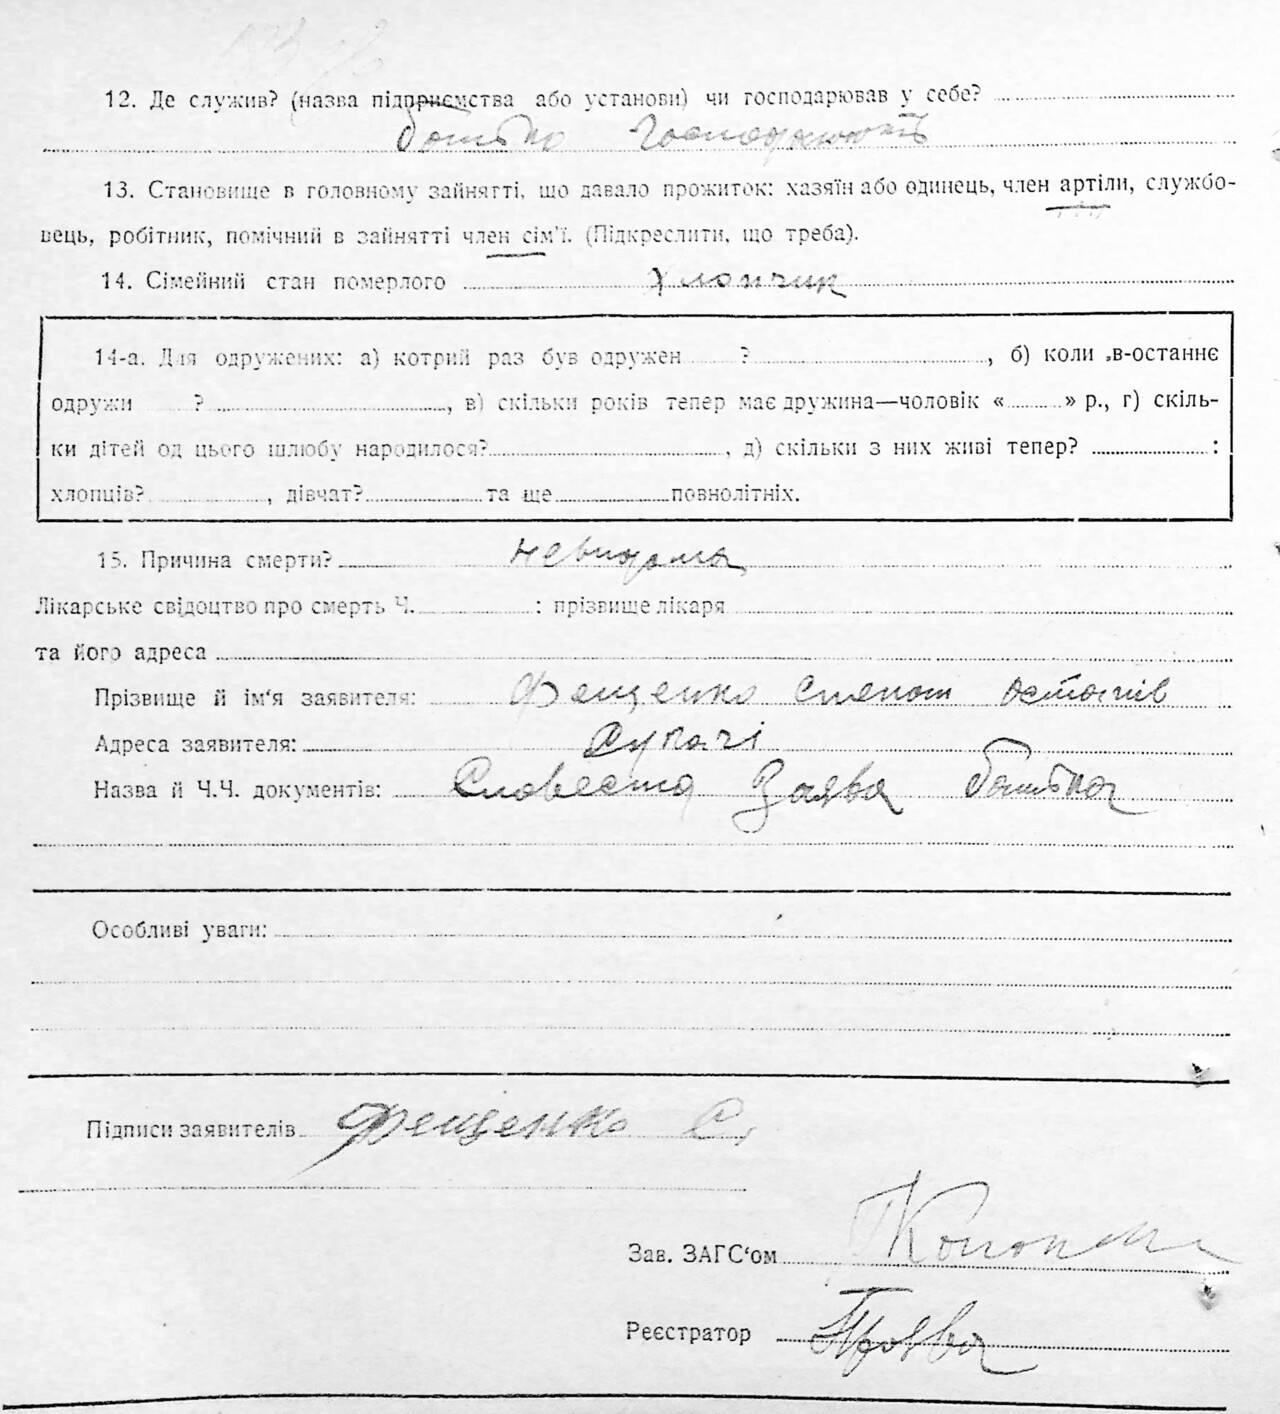 12. Де служив? (назва підприємства або установи) чи господарював у себе?
батько
13. Становище в головному зайнятті, що давало прожиток: хазяїн або одинець, член артіли, службо-
вець, робітник, помічний в зайнятті член сім'ї. (Підкреслити, що треба).
14. Сімейний стан померлого хлопчик
14-а. Для одружених: а) котрий раз був одружен ?, б) коли в-останнє
одружи ?, в) скільки років тепер має дружина—чоловік « » р., г) скіль-
ки дітей од цього шлюбу народилося?, д) скільки з них живі тепер? :
хлопців? , дівчат? та ще повнолітніх.
15. Причина смерти? невидома
Лікарське свідоцтво про смерть Ч. : прізвище лікаря
та його адреса
Прізвище й ім'я заявителя: Фещенко Степан Остапів
Адреса заявителя: Сукачі
Назва й Ч.Ч. документів: Словесна Заява батька
Особливі уваги:
Підписи заявителів Фещенко С.
Зав. ЗАГС'ом
Реєстратор